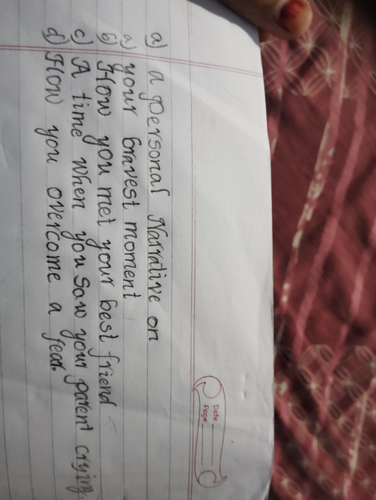 Date
Page
a) a personal Narrative on
a) your bravest moment
b) How you met your best friend
c) A time when you saw your parent crying
d) How you overcome a fear.